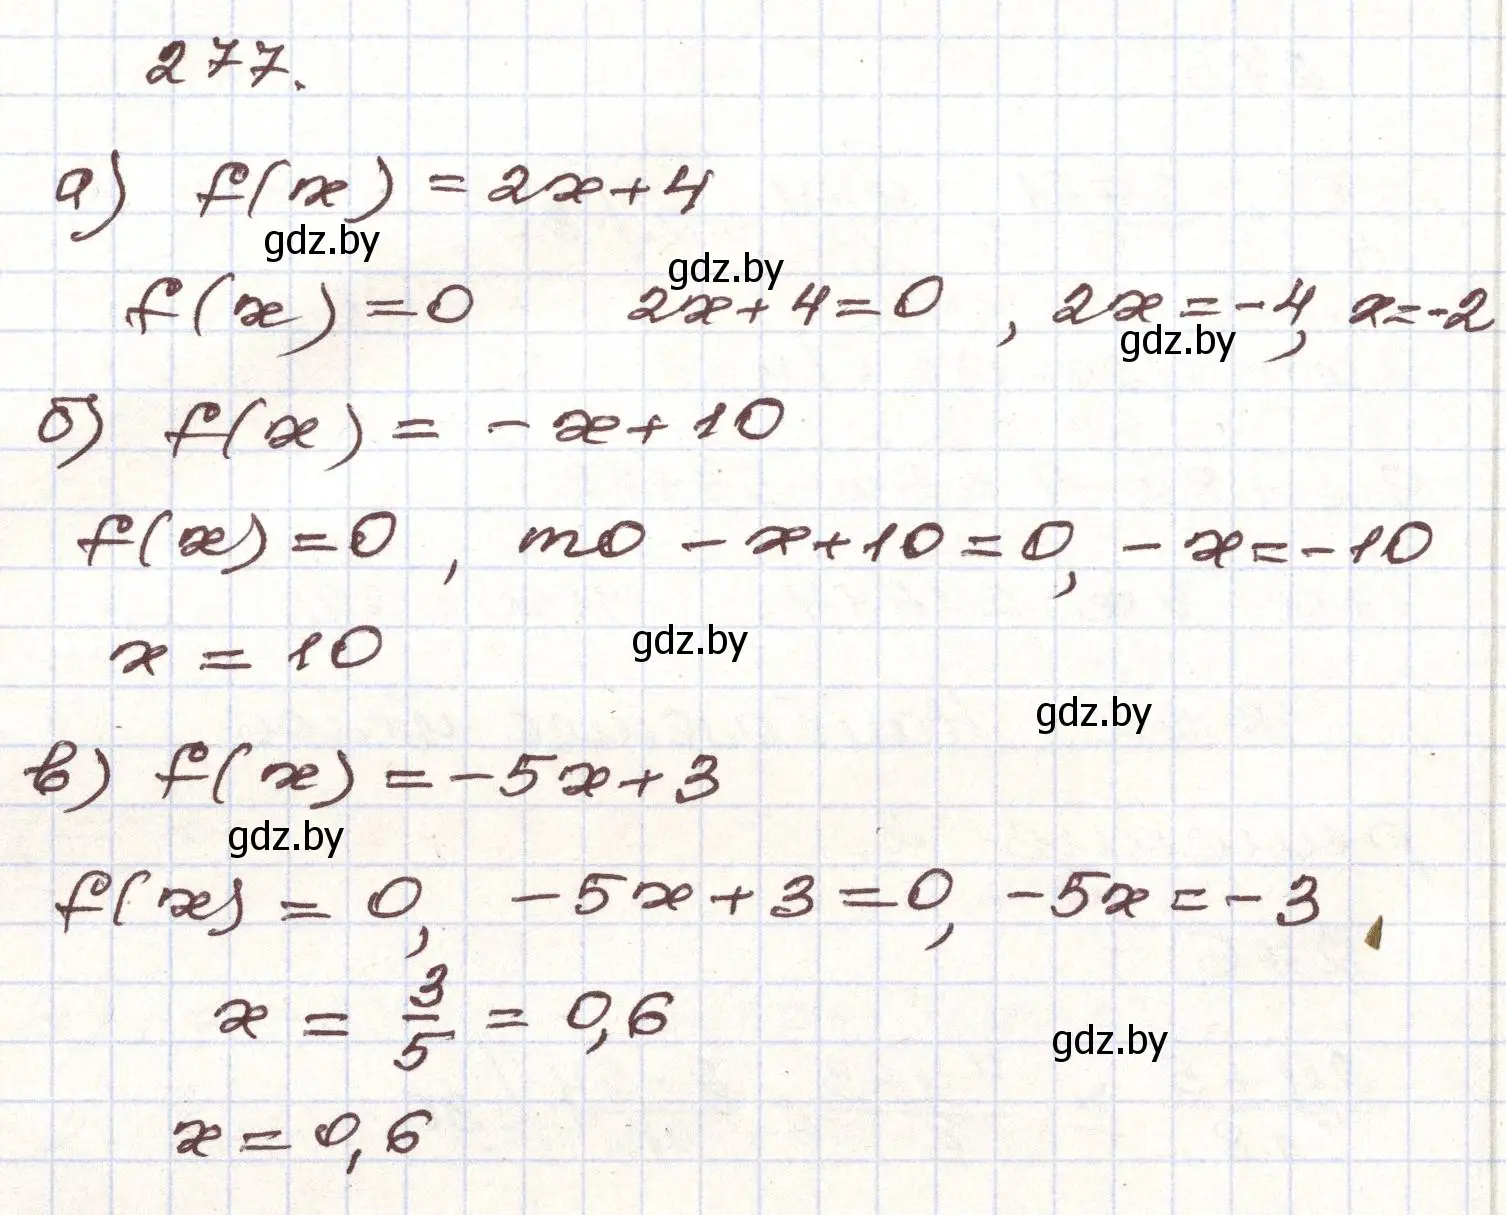 277.
а) f(x) = 2x+4
gdz.by
gdz.by
f(x)=0 2x+4=0 , 2x=-4, x=-2
gdz.by
б) f(x) = -x+10
f(x)=0 , то -x+10=0, -x=-10
x = 10
gdz.by
gdz.by
в) f(x) = -5x+3
gdz.by
f(x) = 0, -5x+3=0, -5x=-3
x = 3/5 = 0,6
gdz.by
x=0,6